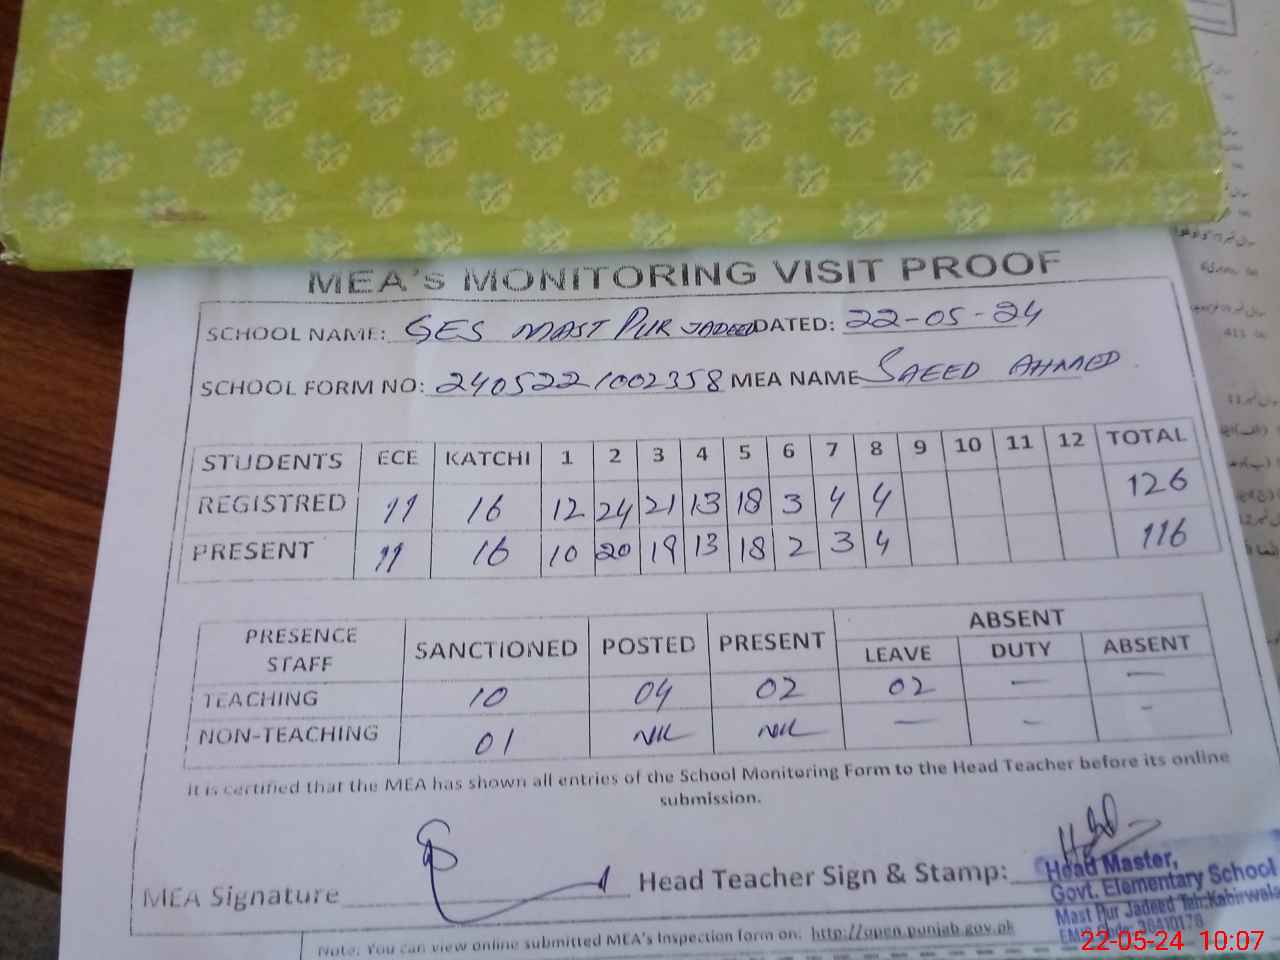 MEA's MONITORING VISIT PROOF
SCHOOL NAME: GES MAST PUR JADEED DATED: 22-05-24
SCHOOL FORM NO: 2405221002358 MEA NAME SAEED AHMED
STUDENTS ECE KATCHI 1 2 3 4 5 6 7 8 9 10 11 12 TOTAL
REGISTRED 11 16 12 24 21 13 18 3 4 4 126
PRESENT 11 16 10 20 19 13 18 2 3 4 116
PRESENCE STAFF SANCTIONED POSTED PRESENT ABSENT
LEAVE DUTY ABSENT
TEACHING 10 04 02 02 — —
NON-TEACHING 01 NIL NIL — - -
It is certified that the MEA has shown all entries of the School Monitoring Form to the Head Teacher before its online
submission.
MEA Signature Head Teacher Sign & Stamp:
Head Master,
Govt. Elementary School
Mast Pur Jadeed Teh: Kabirwala
Note: You can view online submitted MEA's Inspection form on: http://open.punjab.gov.pk
22-05-24 10:07